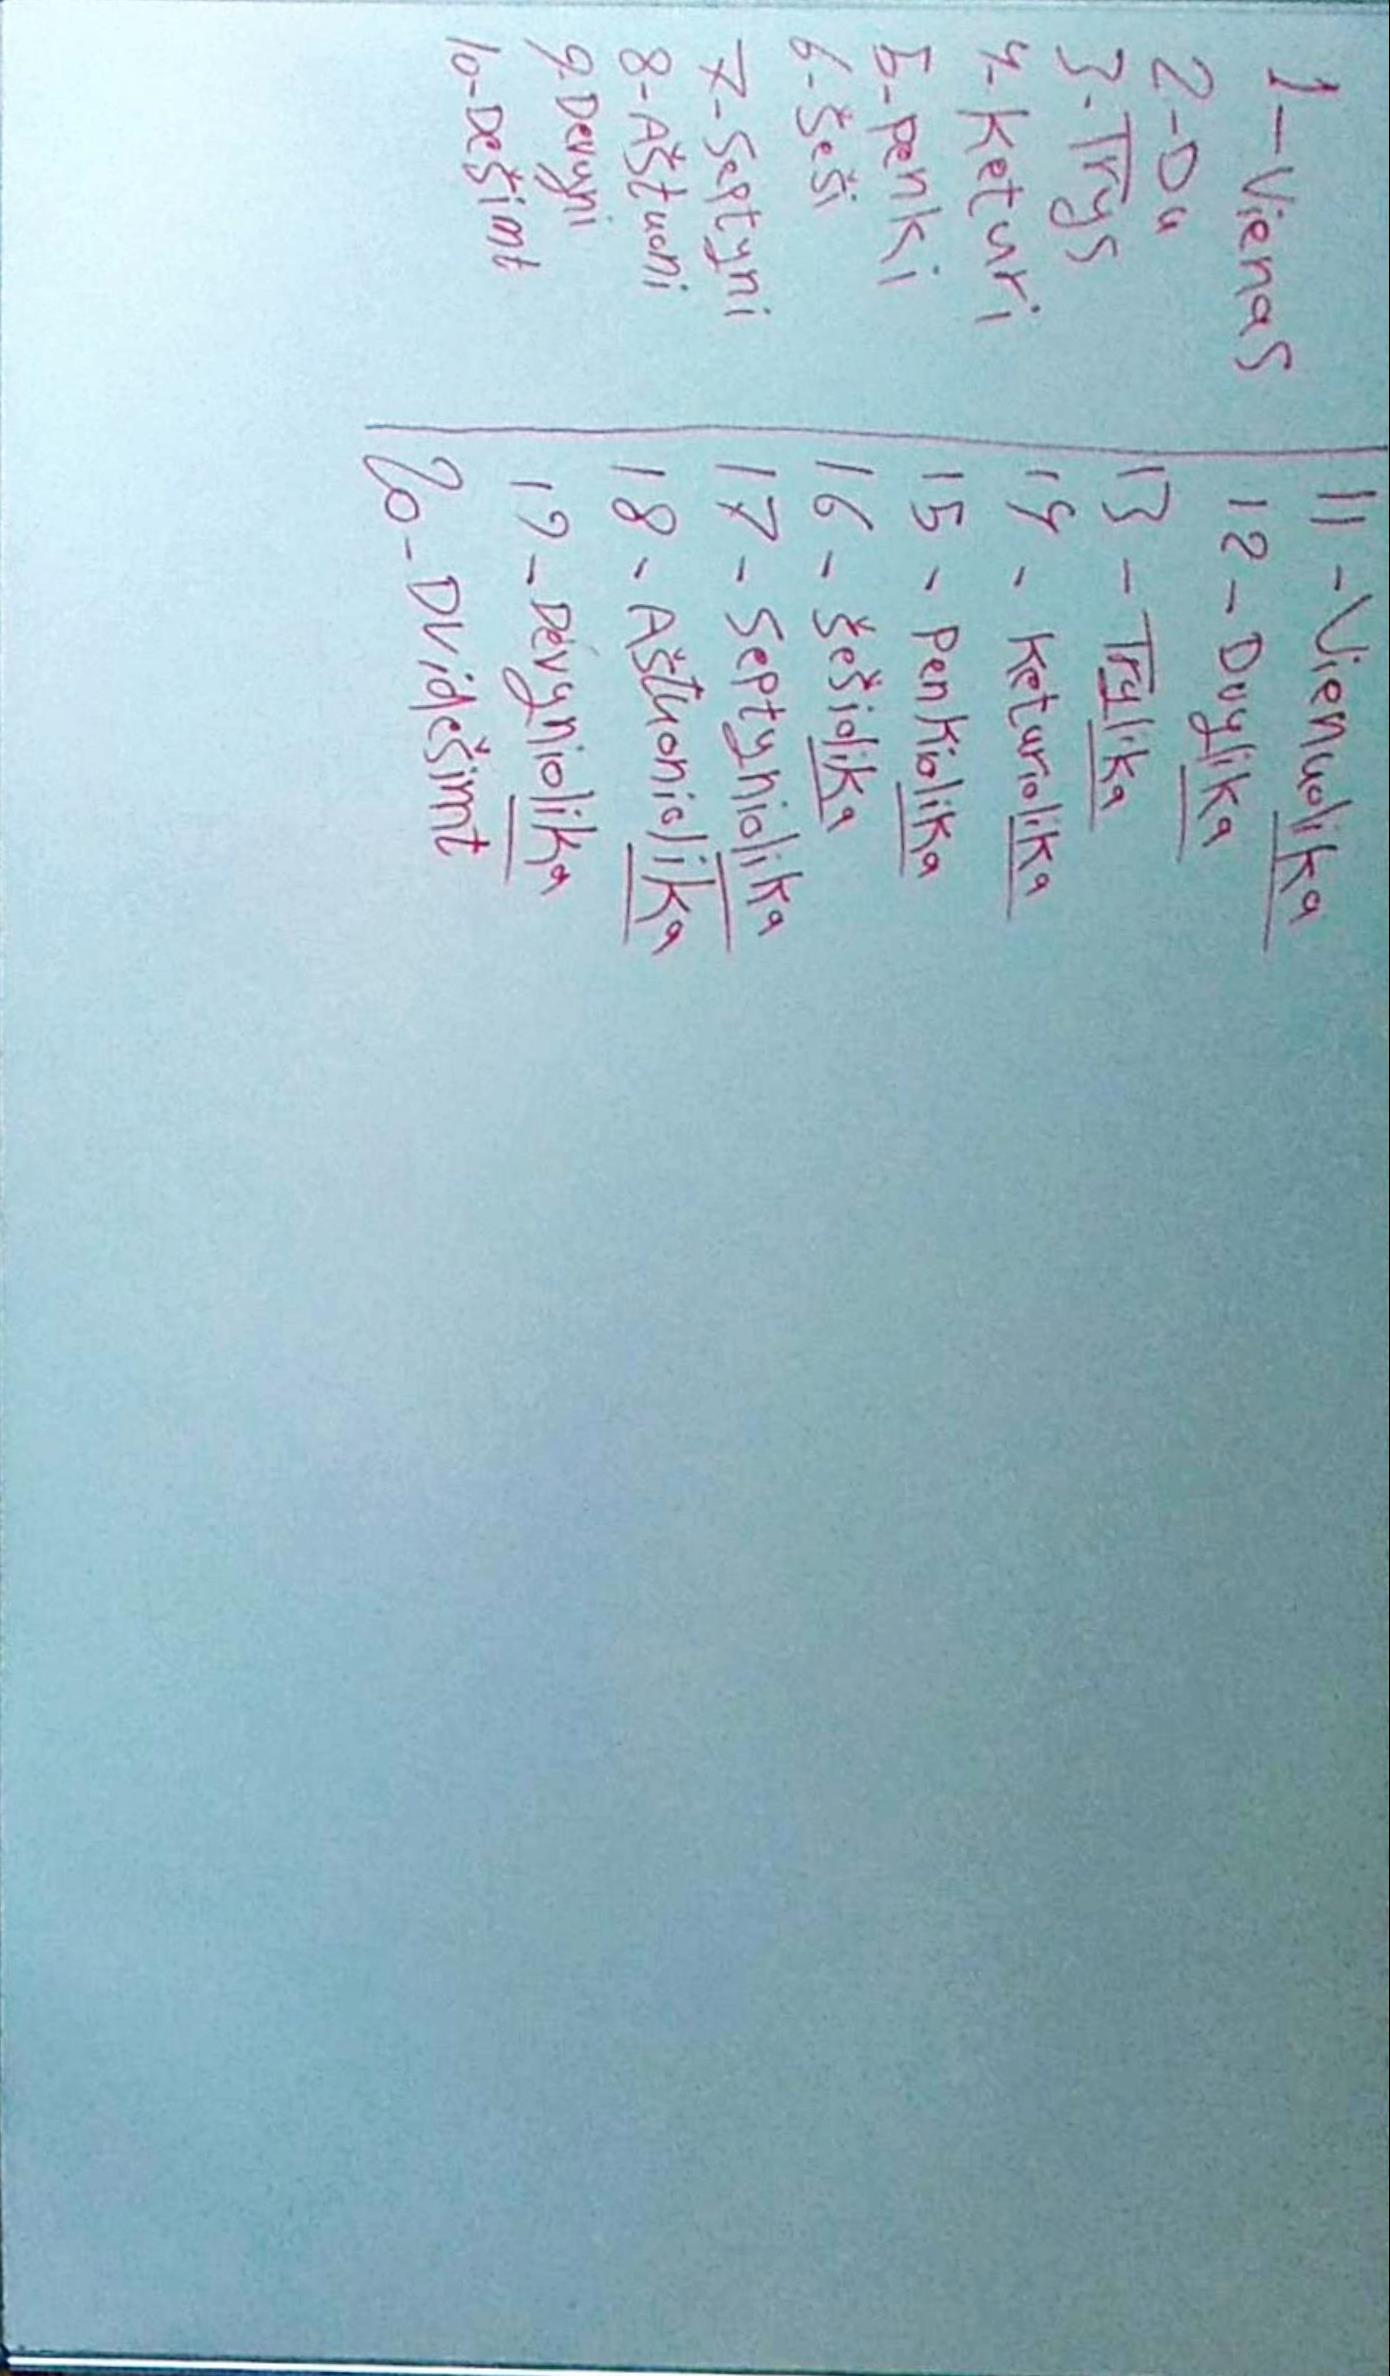 1-Vienas
2-Du
3-Trys
4-Keturi
5-penki
6-Šeši
7-Septyni
8-Aštuoni
9-Devyni
10-Dešimt
11-Vienuolika
12-Dvylika
13-Trylika
14-Keturiolika
15-penkiolika
16-Šešiolika
17-Septyniolika
18-Aštuoniolika
19-Devyniolika
20-Dvidešimt